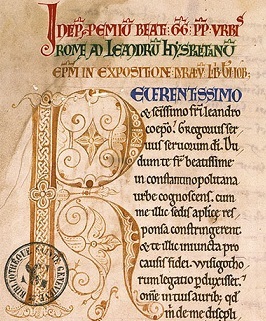 INCIP PREMIŪ BEATI GḠ PP̄ URBIS
ROMĀ AD LEANDRŪ HYSPALENŪ
EPM̄ IN EXPOSITION MRAŲ LIB IOB
REUERENTISSIMO
& sc̄issimo fr̄i leandro
coepo. Gregorius ser
uus seruorum di. Du
dum te fr̄ beatissime
in constantinopolitana
urbe cognoscens. cum
me illic sedis aplice res
ponsa constringerent.
& te illic iniuncta pro
causis fidei uuisigotho
rum legatio pduxisset.
om̄e in tuis aurib; qd
m de me displi